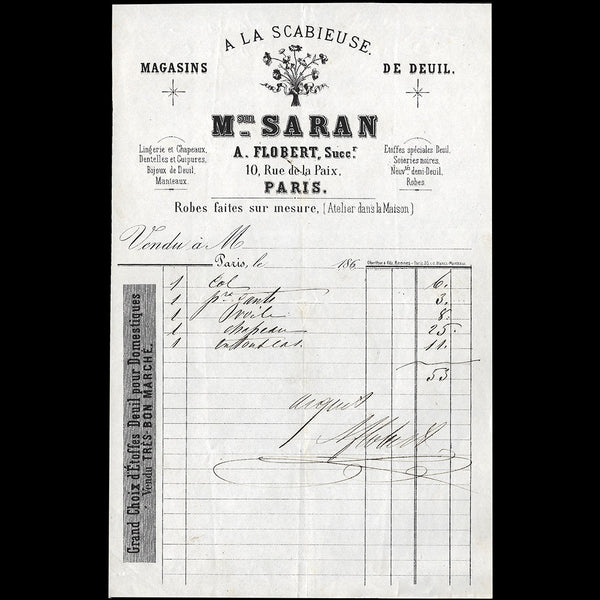 A LA SCABIEUSE.
MAGASINS DE DEUIL.
Mson SARAN
A. FLOBERT, Succr
10, Rue de la Paix,
PARIS.
Lingerie et Chapeaux,
Dentelles et Guipures,
Bijoux de Deuil,
Manteaux.
Etoffes spéciales Deuil,
Soieries noires,
Nouvtés demi-Deuil,
Robes
Robes faites sur mesure, (Atelier dans la Maison)
Vendu à M
Paris, le 186
1 Col 6.
1 pre Gants 3.
1 voile 8.
1 chapeau 25.
1 entout cas. 11.
53
acquit
A Flobert
Grand Choix d'Etoffes Deuil pour Domestiques
Vendu TRÈS-BON MARCHÉ.